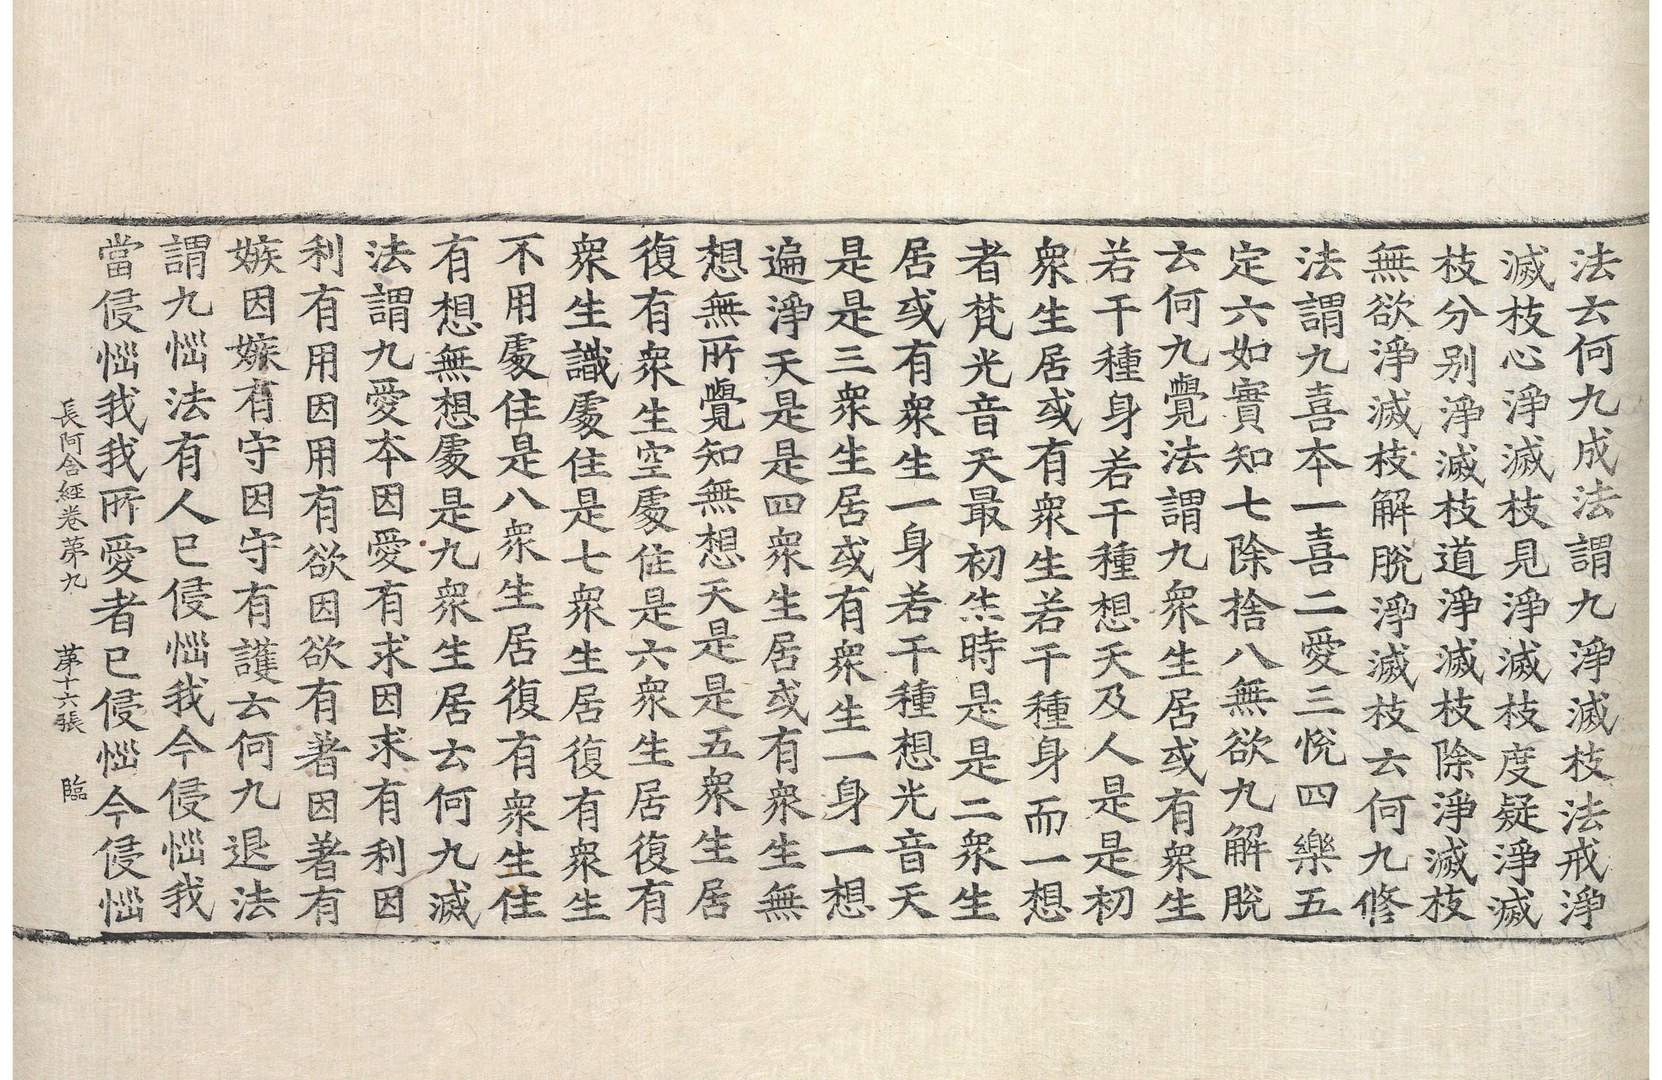 法云何九成法謂九淨滅枝法戒淨
滅枝心淨滅枝見淨滅枝度疑淨滅
枝分別淨滅枝道淨滅枝除淨滅枝
無欲淨滅枝解脫淨滅枝云何九修
法謂九喜本一喜二愛三悅四樂五
定六如實知七除捨八無欲九解脫
云何九覺法謂九衆生居或有衆生
若干種身若干種想天及人是是初
衆生居或有衆生若干種身而一想
者梵光音天最初生時是是二衆生
居或有衆生一身若干種想光音天
是是三衆生居或有衆生一身一想
遍淨天是是四衆生居或有衆生無
想無所覺知無想天是是五衆生居
復有衆生空處住是六衆生居復有
衆生識處住是七衆生居復有衆生
不用處住是八衆生居復有衆生住
有想無想處是九衆生居云何九滅
法謂九愛本因愛有求因求有利因
利有用因用有欲因欲有著因著有
嫉因嫉有守因守有護云何九退法
謂九惱法有人已侵惱我今侵惱我
當侵惱我我所愛者已侵惱今侵惱
長阿含經卷第九 第十六張 臨